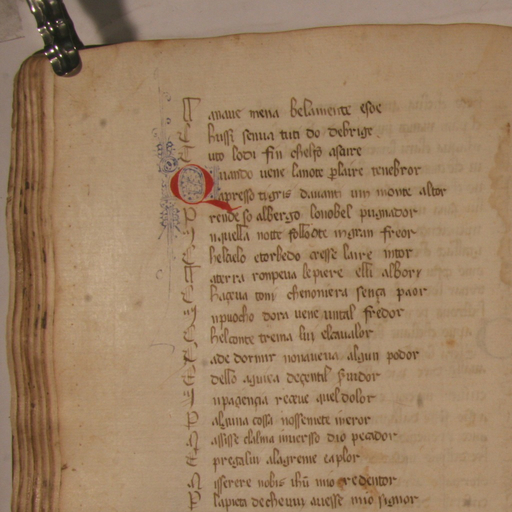 L anaue mena belamente esoe
E hussi senua tuti do debrige
E uto lodi fin chelfo asaire
Quando uene lanote p laire tenebror
Dapresso tigris dauanti un monte altor
Prende so albergo lonobel pugnador
In quella notte follo de ingran freor
Chelcielo e torbedo cresse laire intor
E aterra rompeua lepiere elli albori
E haceua toni chenoniera sença paor
Unpuocho dora uene untal fredor
Chelconte trema lui elcaualor
E ade dormir nonaueua algun podor
dello aguira deçentil
In pagençia receue quel dolor
P alguna cossa nossemete ineror
S assisse clalma inuersso dio pecador
S pregalui alagreme caplor
M isserere nobis ihu mio redentor
P lapieta dechetuui auesse mio signor